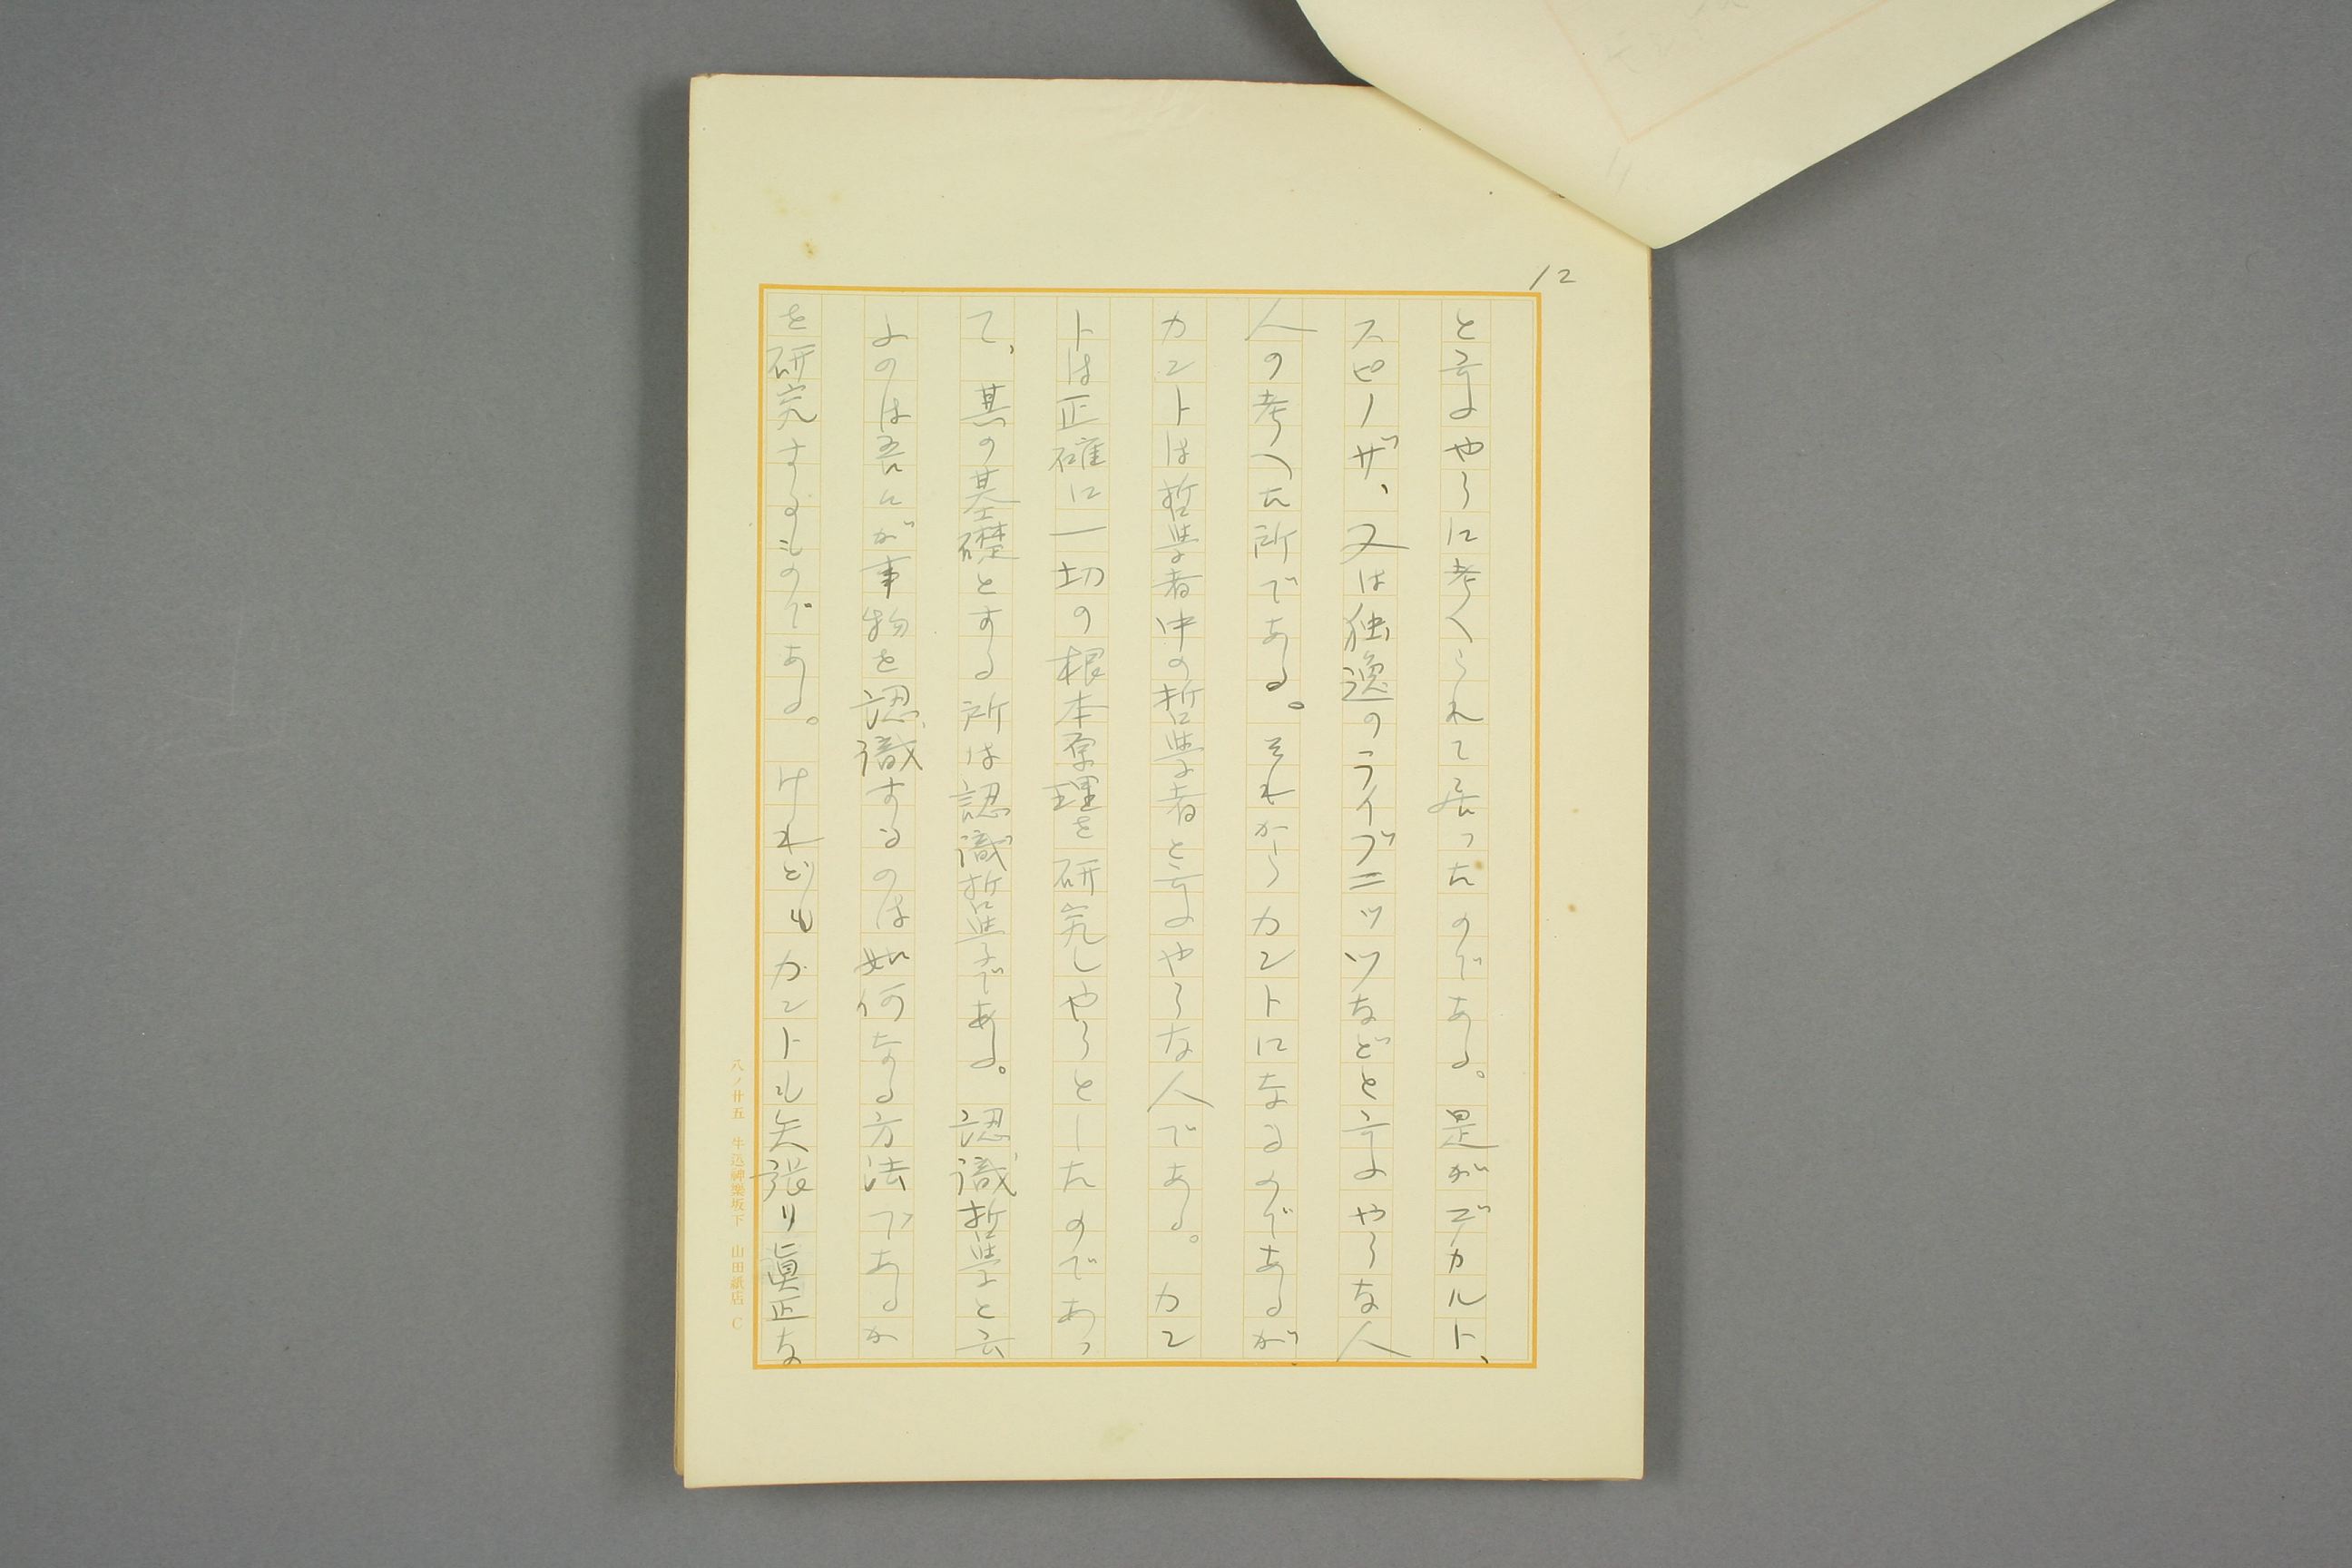 12
と云ふやうに考へられて居つたのである。是がデカルト、
スピノザ、又は独逸のライブニッツなどと云ふやうな人
人の考へた所である。それからカントになるのであるが、
カントは哲学者中の哲学者と云ふやうな人である。カン
トは正確に一切の根本原理を研究しやうとしたのであつ
て、其の基礎とする所は認識哲学である。認識哲学と云
ふのは吾々が事物を認識するのは如何なる方法であるか
を研究するものである。けれどもカントも矢張り眞正な
八ノ廿五 牛込神樂坂下 山田紙店 C